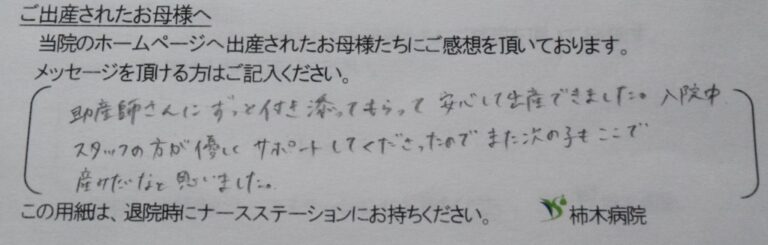 ご出産されたお母様へ
当院のホームページへ出産されたお母様たちにご感想を頂いております。
メッセージを頂ける方はご記入ください。
助産師さんにずっと付き添ってもらって安心して出産できました。入院中
スタッフの方が優しくサポートしてくださったのでまた次の子もここで
産みたいなと思いました。
この用紙は、退院時にナースステーションにお持ちください。 柿木病院